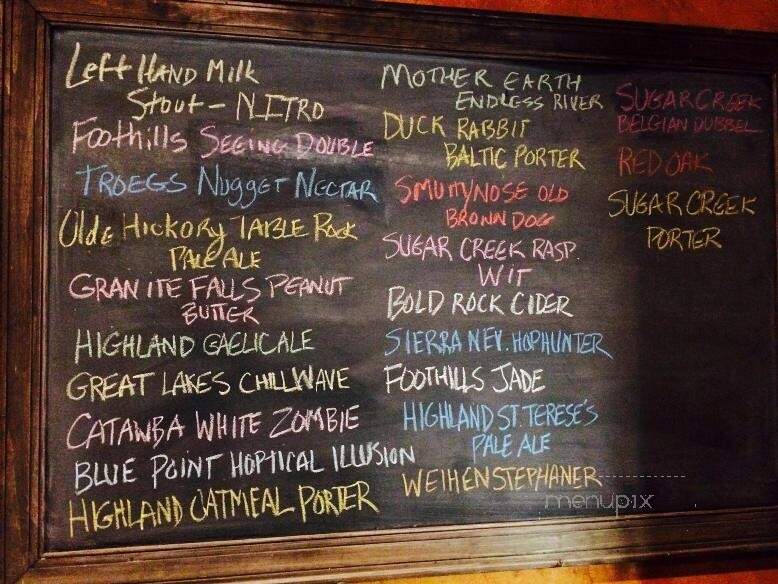 Left HAND Milk
Stout - NITRO
Foothills SEEING DOUBLE
TROEGS NUGGET NECTAR
Olde Hickory TABLE Rock
PALE ALE
GRANITE FALLS PEANUT
BUTTER
HIGHLAND GAELIC ALE
GREAT LAKES CHILLWAVE
CATAWBA WHITE ZOMBIE
BLUE POINT HOPTICAL ILLUSION
HIGHLAND OATMEAL PORTER
MOTHER EARTH
ENDLESS RIVER
DUCK RABBIT
BALTIC PORTER
SMUTTYNOSE OLD
BROWN DOG
SUGAR CREEK RASP.
WIT
BOLD ROCK CIDER
SIERRA NEV. HOPHUNTER
FOOTHILLS JADE
HIGHLAND ST. TERESE'S
PALE ALE
WEIHENSTEPHANER
SUGAR CREEK
BELGIAN DUBBEL
RED OAK
SUGAR CREEK
PORTER
menupix